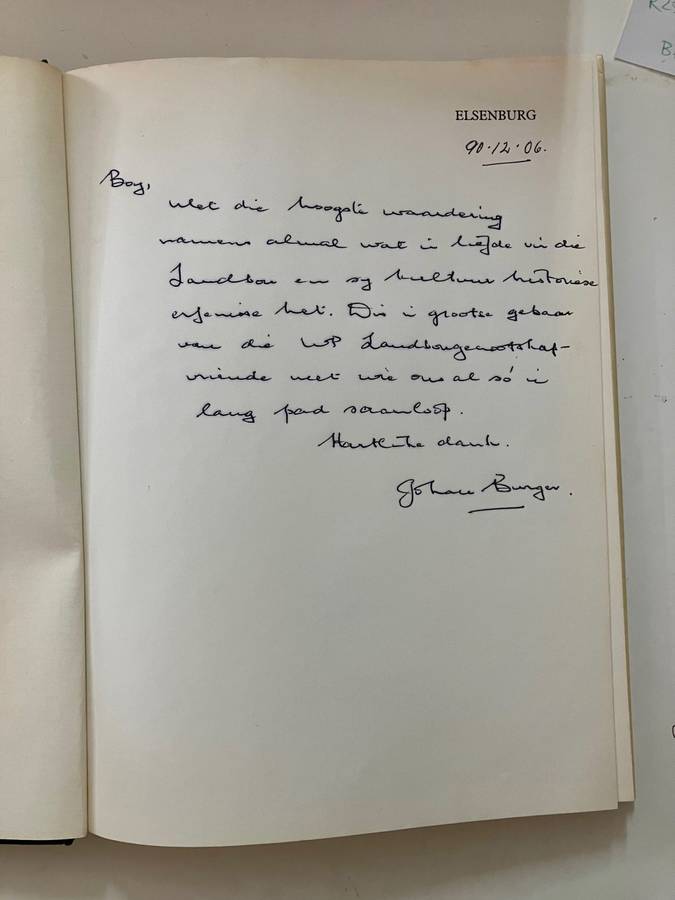 ELSENBURG
90·12·06.
Boy,
Met die hoogste waardering
namens almal wat 'n liefde vir die
Landbou en sy kultuur historiese
erfenisse het. Dis 'n grootse gebaar
van die WP Landbougenootskap-
vriende met wie ons al só 'n
lang pad saamloop.
Hartlike dank.
Johan Burger.